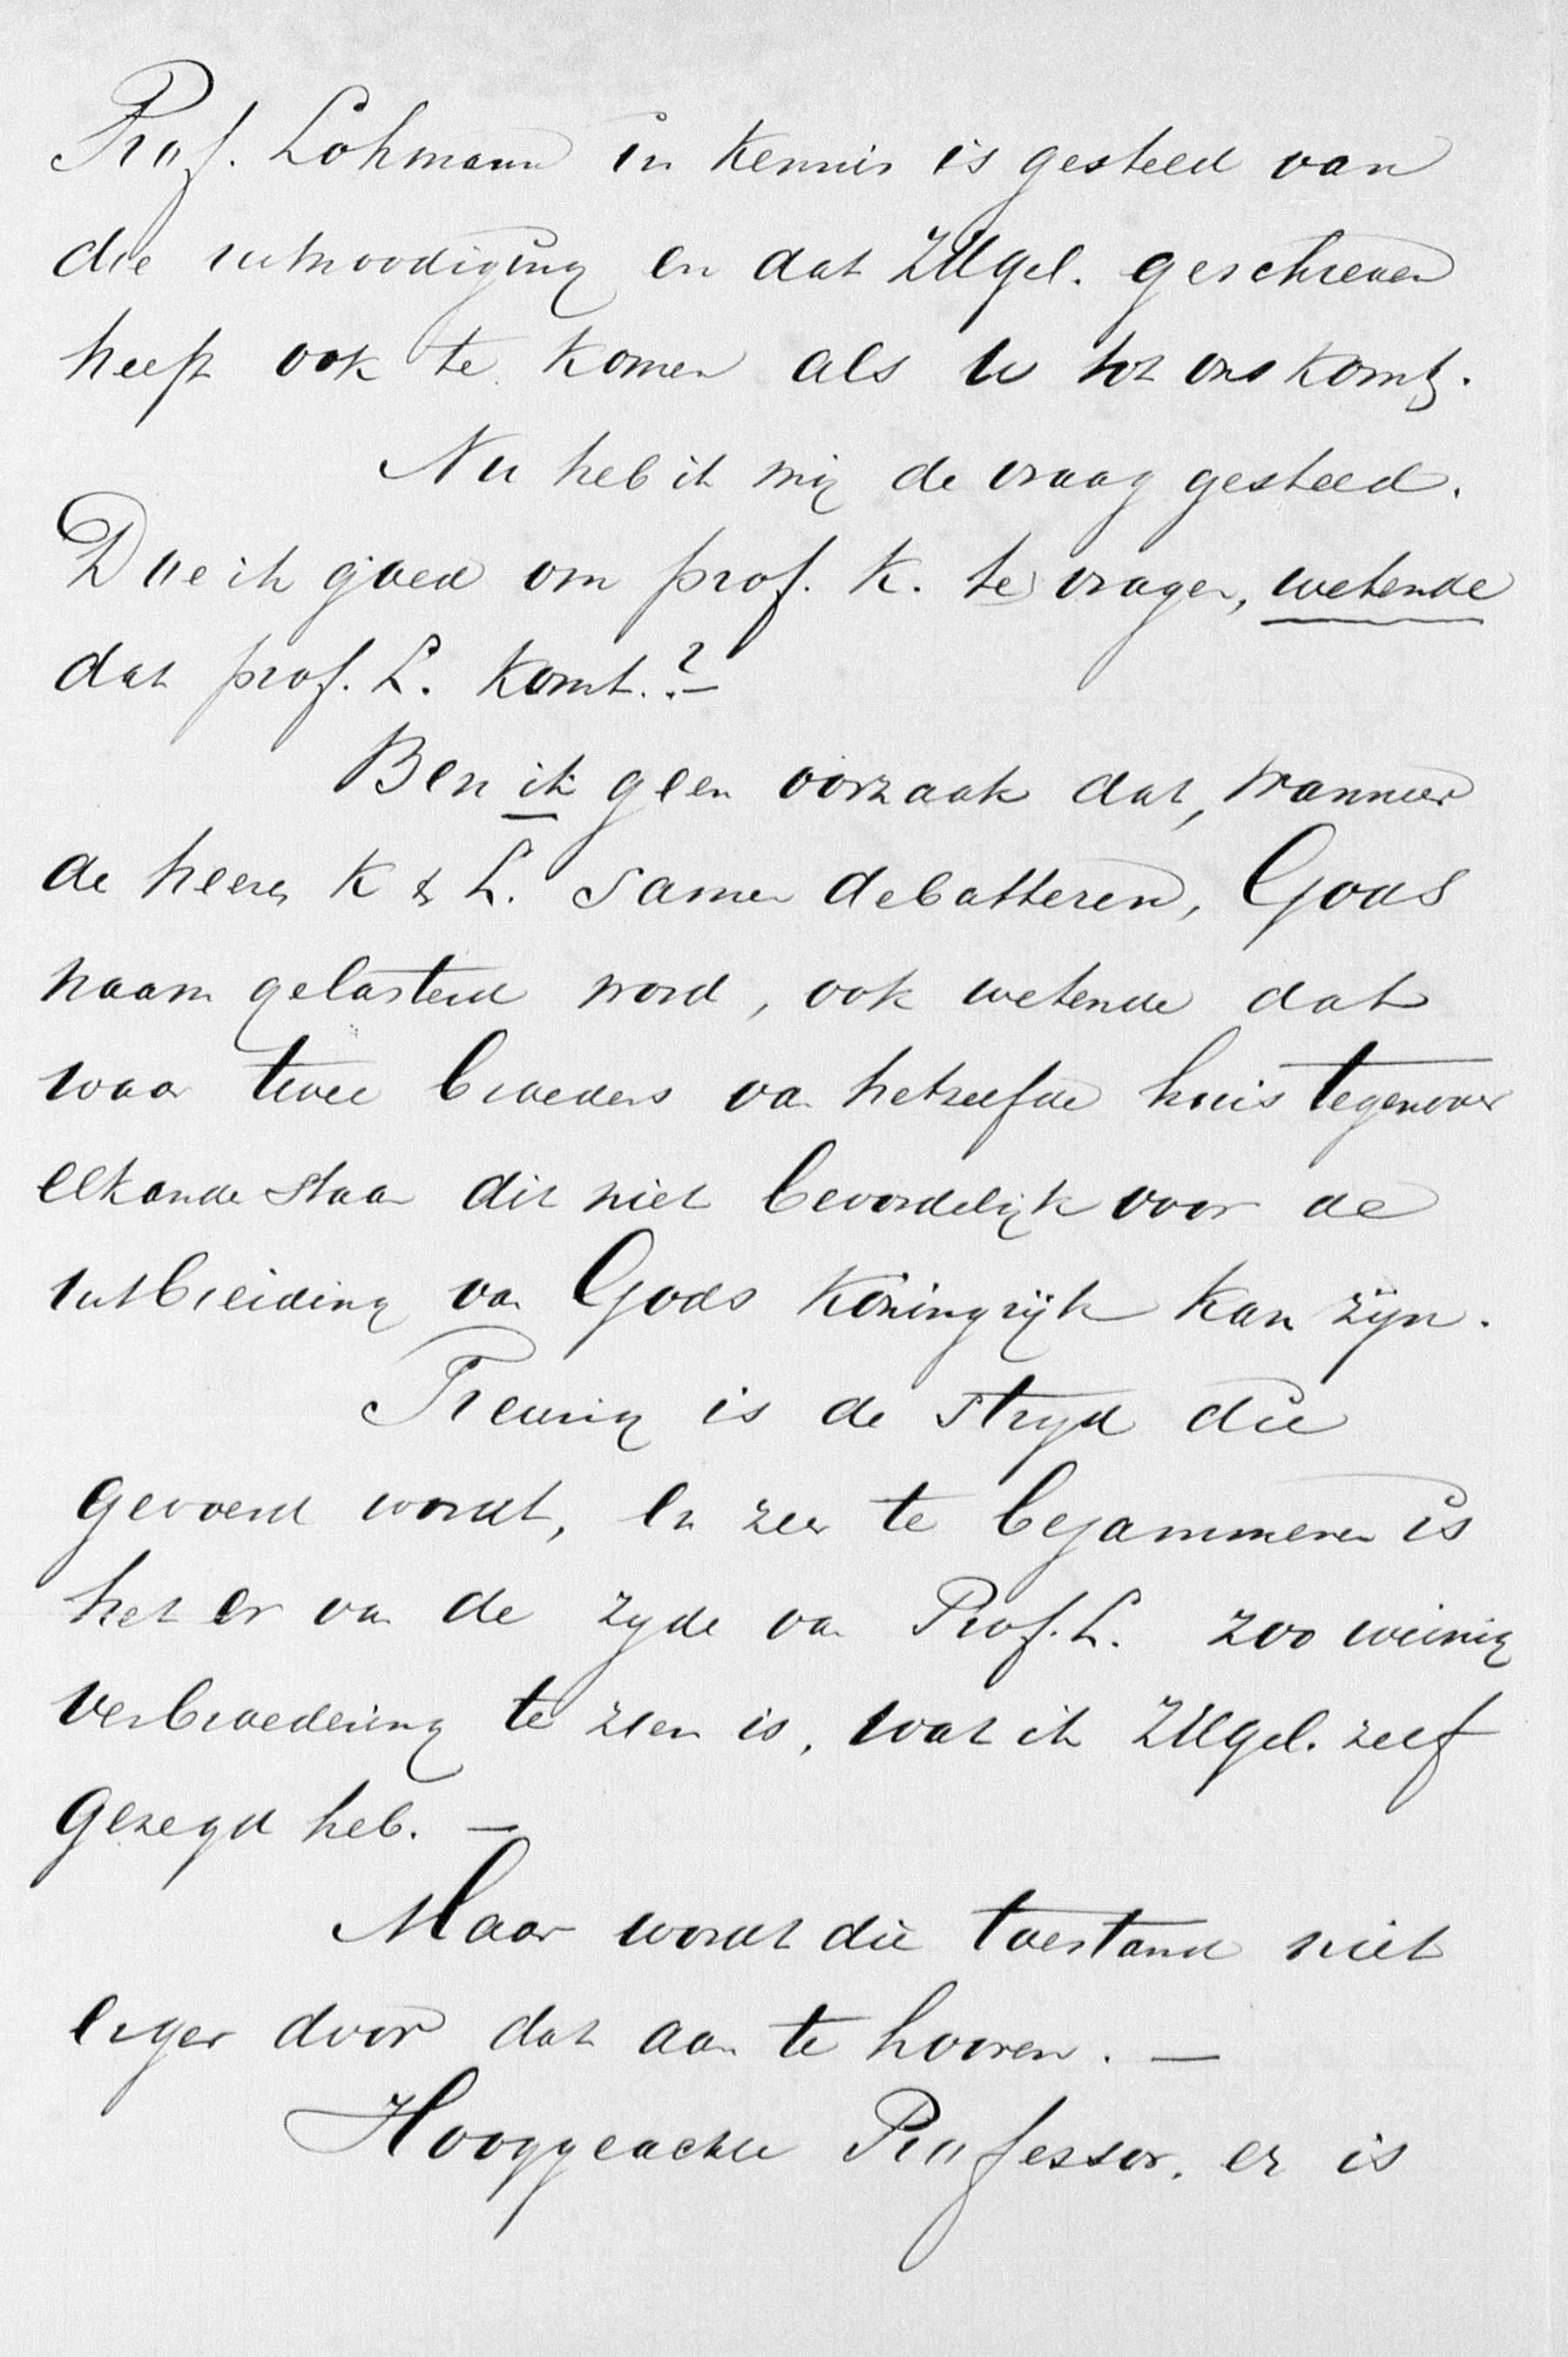 Prof. Lohmann in kennis is gesteld van
die uitnoodiging en dat ZHgel. geschreven
heeft ook te komen als U tot ons komt.
Nu heb ik mij de vraag gesteld.
Doe ik goed om prof. K. te vragen, wetende
dat prof. L. komt.?—
Ben ik geen oorzaak dat, wanneer
de heeren K & L. samen debatteren, Gods
naam gelasterd word, ook wetende dat
waar twee broeders van hetzelfde huis tegenover
elkander staan dit niet bevorderlijk voor de
uitbreiding van Gods Koningrijk kan zijn.
Treurig is de stryd die
gevoerd wordt, en zeer te bejammeren is
het er van de zyde van Prof. L. zoo weinig
verbroedering te zien is, wat ik ZHgel. zelf
gezegd heb. —
Maar wordt die toestand niet
erger door dat aan te hooren. —
Hooggeachte Professor, er is